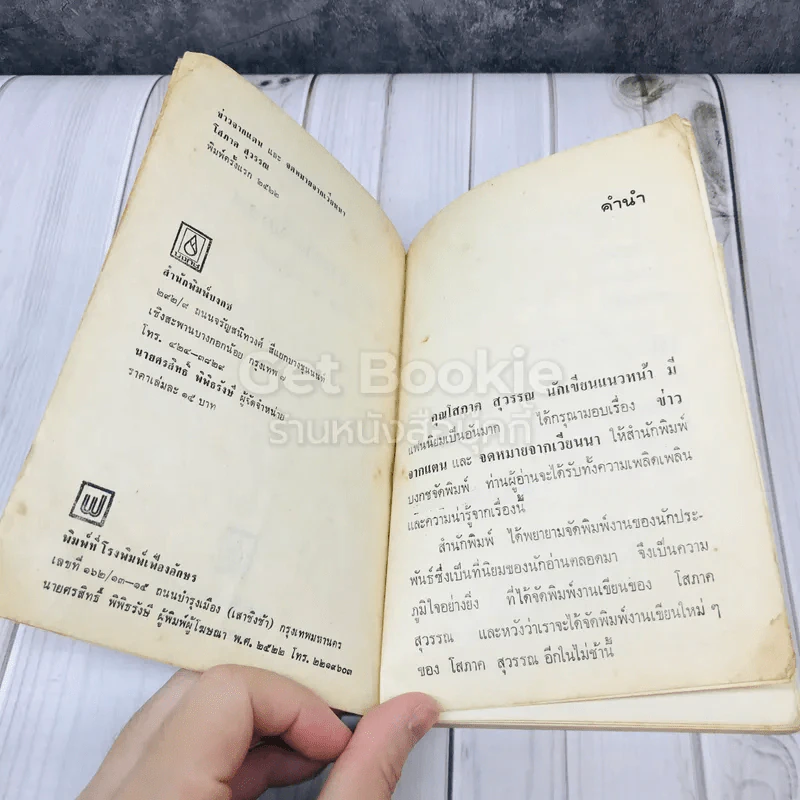 ข่าวจากแดน และ จดหมายจากเวียนนา
โสภาค สุวรรณ
พิมพ์ครั้งแรก ๒๕๒๒
บงกช
สำนักพิมพ์บงกช
๒๙๒/๙ ถนนจรัญสนิทวงศ์ สี่แยกบางขุนนนท์
เชิงสะพานบางกอกน้อย กรุงเทพ ๗
โทร. ๔๒๔-๓๘๒๙
นายศรสิทธิ์ พิพิธรังษี ผู้จัดจำหน่าย
ราคาเล่มละ ๑๕ บาท
พิมพ์ที่ โรงพิมพ์เฟื่องอักษร
เลขที่ ๑๖๒/๑๓-๑๕ ถนนบำรุงเมือง (เสาชิงช้า) กรุงเทพมหานคร
นายศรสิทธิ์ พิพิธรังษี ผู้พิมพ์ผู้โฆษณา พ.ศ. ๒๕๒๒ โทร. ๒๒๑๙๖๐๓
คำนำ
คุณโสภาค สุวรรณ นักเขียนแนวหน้า มี
แฟนนิยมเป็นอันมาก ได้กรุณามอบเรื่อง ข่าว
จากแดน และ จดหมายจากเวียนนา ให้สำนักพิมพ์
บงกชจัดพิมพ์ ท่านผู้อ่านจะได้รับทั้งความเพลิดเพลิน
และความน่ารู้จากเรื่องนี้
สำนักพิมพ์ ได้พยายามจัดพิมพ์งานของนักประ-
พันธ์ซึ่งเป็นที่นิยมของนักอ่านตลอดมา จึงเป็นความ
ภูมิใจอย่างยิ่ง ที่ได้จัดพิมพ์งานเขียนของ โสภาค
สุวรรณ และหวังว่าเราจะได้จัดพิมพ์งานเขียนใหม่ ๆ
ของ โสภาค สุวรรณ อีกในไม่ช้านี้
Get Bookie
ร้านหนังสือบุ๊คกี้